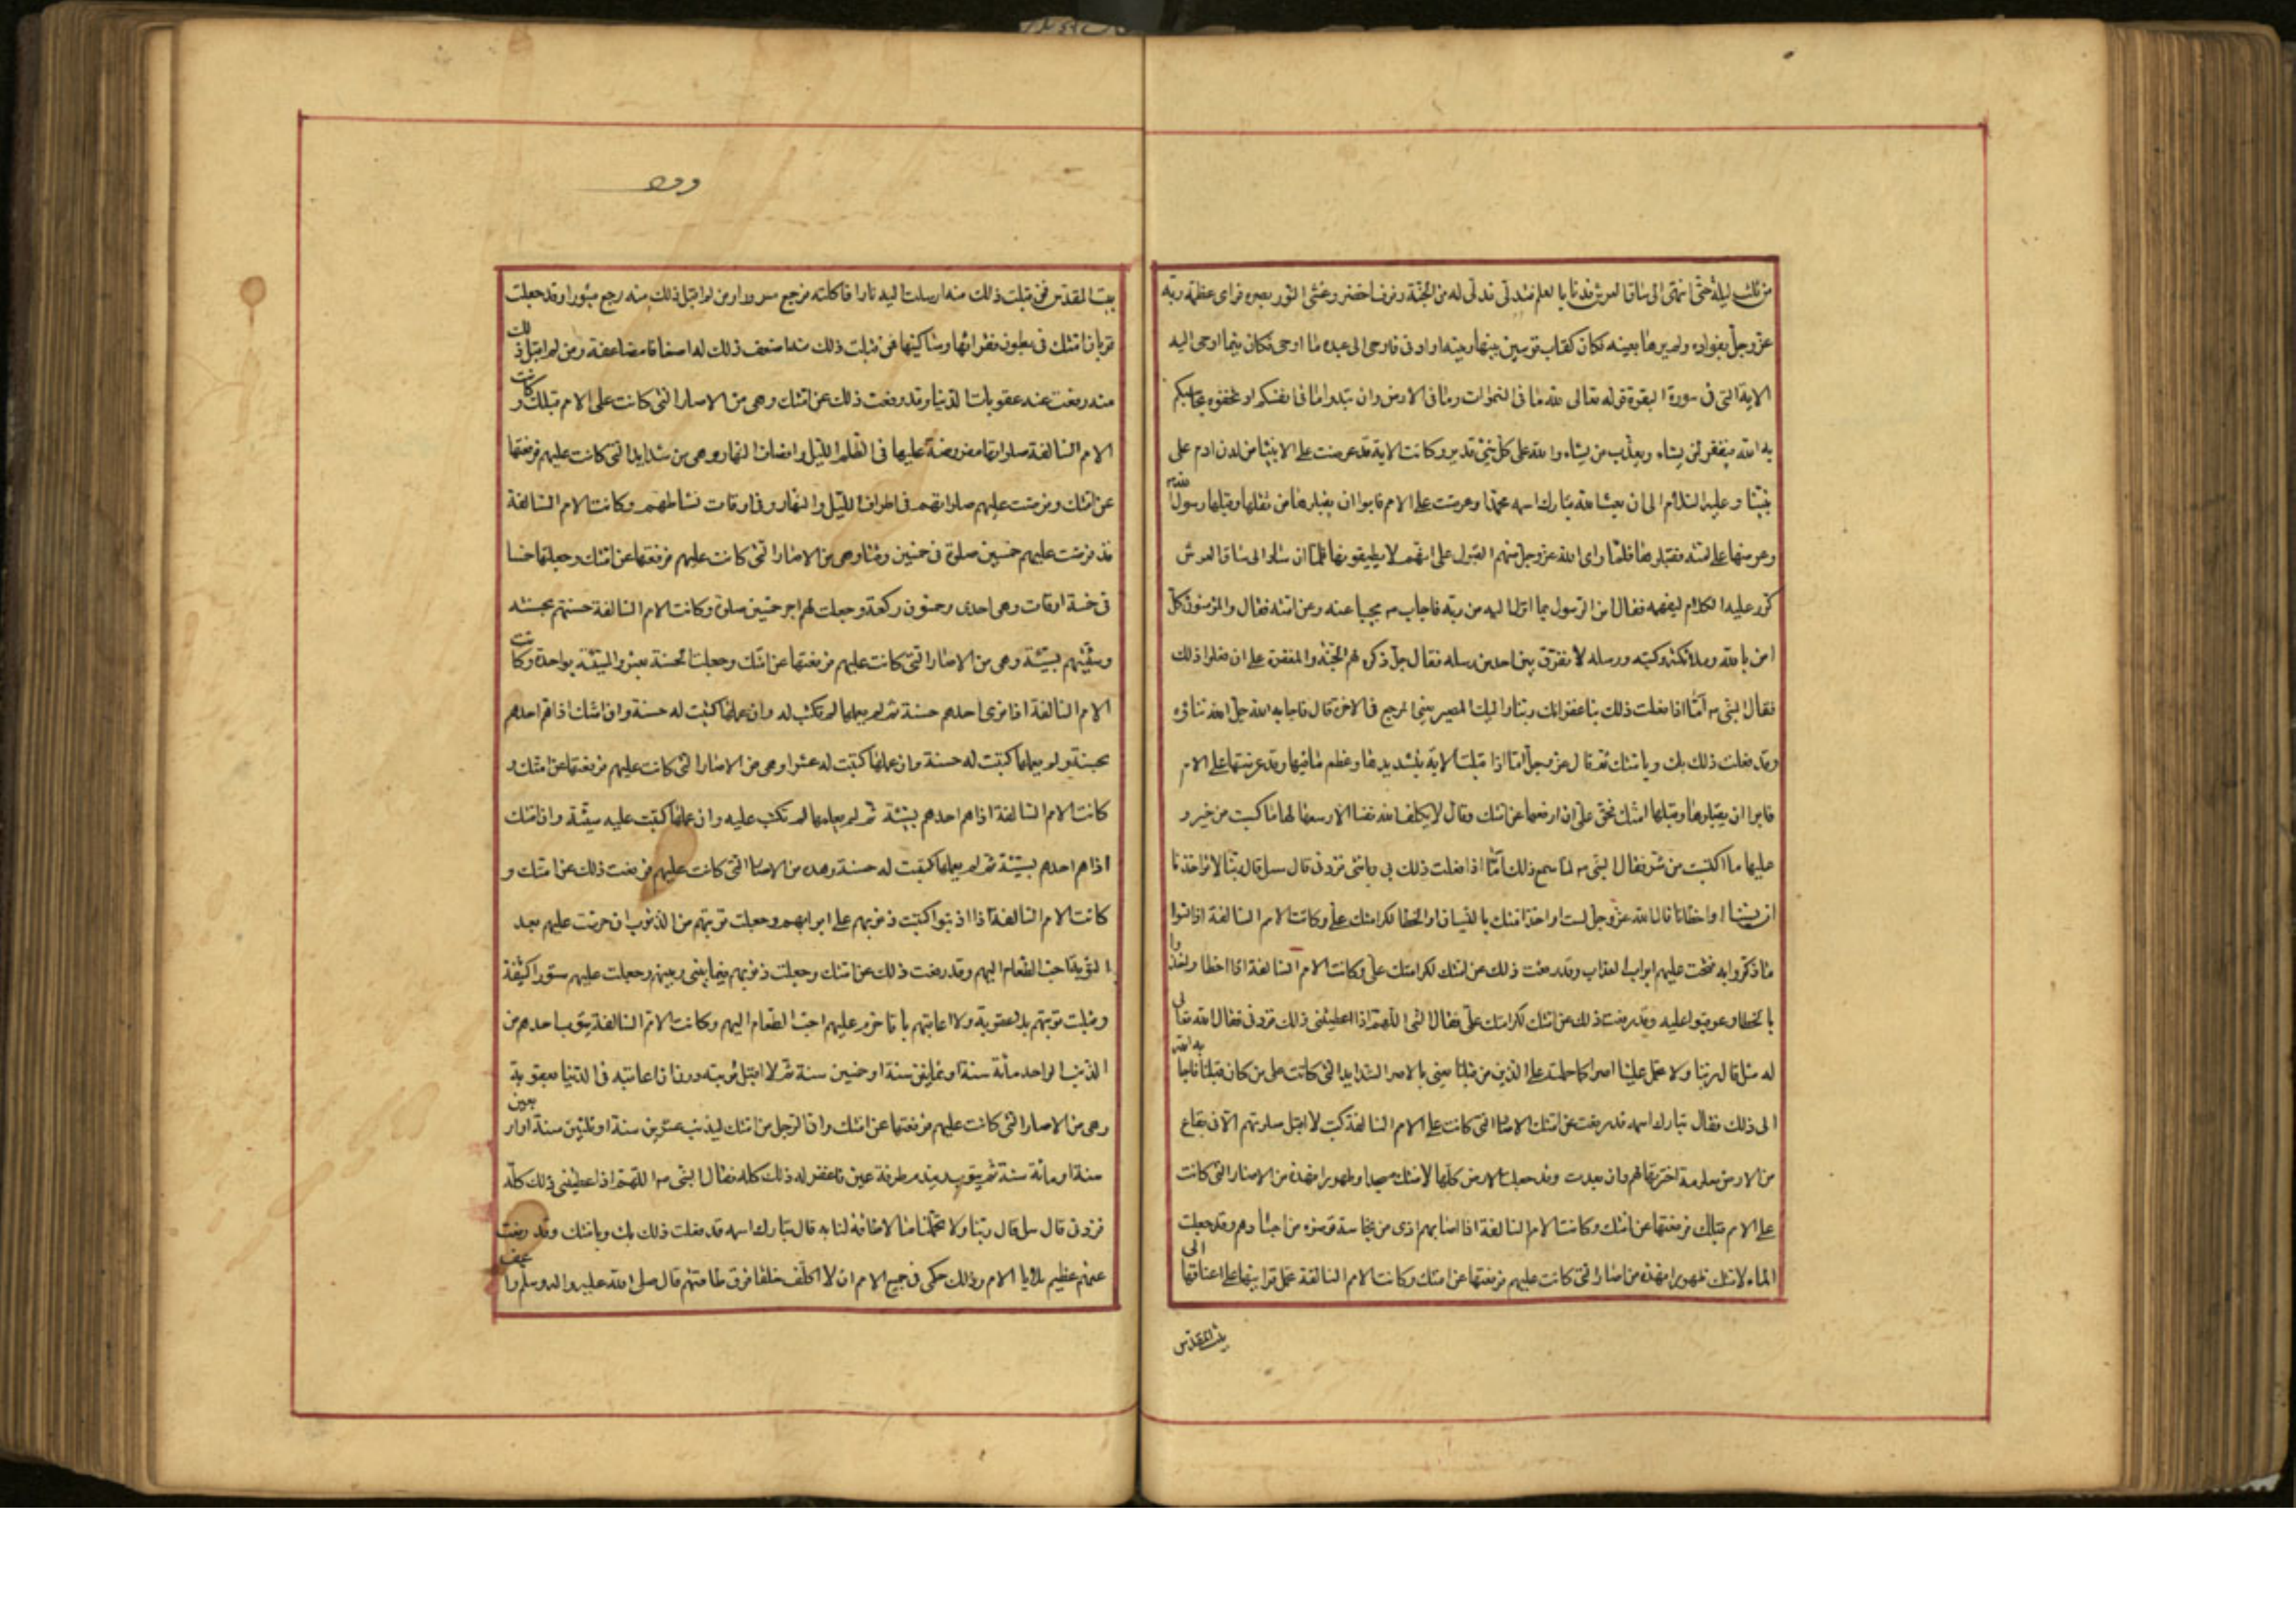 من ثلث ليلة حتى انتهى الى ساق العرش فدنا بالعلم فتدلى فدلى له من الجنة رفرف اخضر وغشى النور بصره فراى عظمة ربه
عز وجل بفؤاده ولم يرها بعينه فكان كقاب قوسين بينها وبينه او ادنى فاوحى الى عبده ما اوحى فكان فيما اوحى اليه
الاية التى فى سورة البقرة قوله تعالى لله ما فى السموات وما فى الارض وان تبدوا ما فى انفسكم او تخفوه يحاسبكم
به الله فيغفر لمن يشاء ويعذب من يشاء والله على كل شئ قدير وكانت الاية قد عرضت على الانبيا من لدن ادم على
نبينا وعليه السلام الى ان بعث الله تبارك اسمه محمدا وعرضت على الامم فابوا ان يقبلوها من ثقلها وقبلها رسول الله
وعرضها على امته فقبلوها فلما راى الله عز وجل منهم القبول على انهم لا يطيقونها فلما ان سار الى ساق العرش
كرر عليه الكلام ليفهمه فقال امن الرسول بما انزل اليه من ربه فاجاب ص مجيبا عنه وعن امته فقال والمؤمنون كل
امن بالله وملائكته وكتبه ورسله لا نفرق بين احد من رسله فقال جل ذكره لهم الجنة والمغفرة على ان فعلوا ذلك
فقال النبى ص اما اذا فعلت ذلك بنا غفرانك ربنا واليك المصير يعنى المرجع فى الاخرة قال فاجابه الله جل ثناؤه
وقد فعلت ذلك بك وبامتك ثم قال عز وجل اما اذا قبلت الاية بتشديدها وعظم ما فيها وقد عرضتها على الامم
فابوا ان يقبلوها وقبلها امتك فحق على ان ارفعها عن امتك وقال لا يكلف الله نفسا الا وسعها لها ما كسبت من خير و
عليها ما اكتسبت من شر فقال النبى ص لما سمع ذلك اما اذا فعلت ذلك بى وبامتى فزدنى قال سل قال ربنا لا تؤاخذنا
ان نسينا او اخطانا قال الله عز وجل لست اواخذ امتك بالنسيان او الخطا لكرامتك على وكانت الامم السالفة اذا نسوا
ما ذكروا به فتحت عليهم ابواب العذاب وقد رفعت ذلك عن امتك لكرامتك على وكانت الامم السالفة اذا اخطاوا اخذوا
بالخطا وعوقبوا عليه وقد رفعت ذلك عن امتك لكرامتك على فقال النبى اللهم اذا اعطيتنى ذلك فزدنى فقال الله تعالى
له سل قال ربنا ولا تحمل علينا اصرا كما حملته على الذين من قبلنا يعنى بالاصر الشدايد التى كانت على من كان قبلنا فاجابه الله
الى ذلك فقال تبارك اسمه قد رفعت عن امتك الاصار التى كانت على الامم السالفة كنت لا اقبل صلوتهم الا فى بقاع
من الارض معلومة اخترتها لهم وان بعدت وقد جعلت الارض كلها لامتك مسجدا وطهورا فهذه من الاصار التى كانت
على الامم قبلك فرفعتها عن امتك وكانت الامم السالفة اذا اصابهم اذى من نجاسة قرضوه من اجسادهم وقد جعلت
الماء لامتك طهورا فهذه من اصار التى كانت عليهم فرفعتها عن امتك وكانت الامم السالفة تحمل قرابينها على اعناقها الى
بيت المقدس
بيت المقدس فمن قبلت ذلك منه ارسلت اليه نارا فاكلته فرجع مسرورا ومن لم اقبل ذلك منه رجع مثبورا وقد جعلت
قربان امتك فى بطون فقرائها ومساكينها فمن قبلت ذلك منه اضعف ذلك له اضعافا مضاعفة ومن لم اقبل ذلك
منه رفعت عنه عقوبات الدنيا وقد رفعت ذلك عن امتك وهى من الاصار التى كانت على الامم قبلك وكانت
الامم السالفة صلواتها مفروضة عليها فى الظلم الليل وانصاف النهار وهى من شدايد التى كانت عليهم فرفعتها
عن امتك وفرضت عليهم صلواتهم فى اطراف الليل والنهار وفى اوقات نشاطهم وكانت الامم السالفة
قد فرضت عليهم خمسين صلوة فى خمسين وقتا وهى من الاصار التى كانت عليهم فرفعتها عن امتك وجعلتها خمسا
فى خمسة اوقات وهى احدى وخمسون ركعة وجعلت لهم اجر خمسين صلوة وكانت الامم السالفة حسنتهم بحسنة
وسيئتهم بسيئة وهى من الاصار التى كانت عليهم فرفعتها عن امتك وجعلت الحسنة بعشر والسيئة بواحدة وكانت
الامم السالفة اذا نوى احدهم حسنة ثم لم يعملها لم تكتب له وان عملها كتبت له حسنة وان امتك اذا هم احدهم
بحسنة ولم يعملها كتبت له حسنة وان عملها كتبت له عشرا وهى من الاصار التى كانت عليهم فرفعتها عن امتك و
كانت الامم السالفة اذا هم احدهم بسيئة ثم لم يعملها لم تكتب عليه وان عملها كتبت عليه سيئة وان امتك
اذا هم احدهم بسيئة ثم لم يعملها كتبت له حسنة وهذه من الاصار التى كانت عليهم فرفعت ذلك عن امتك و
كانت الامم السالفة اذا اذنبوا كتبت ذنوبهم على ابوابهم وجعلت توبتهم من الذنوب ان حرمت عليهم بعد
التوبة احب الطعام اليهم وقد رفعت ذلك عن امتك وجعلت ذنوبهم فيما بينى وبينهم وجعلت عليهم ستورا كثيفة
وقبلت توبتهم بلا عقوبة ولا اعاقبهم بان احرم عليهم احب الطعام اليهم وكانت الامم السالفة يتوب احدهم من
الذنب الواحد مائة سنة او ثمانين سنة او خمسين سنة ثم لا اقبل توبته دون ان اعاقبه فى الدنيا بعقوبة
وهى من الاصار التى كانت عليهم فرفعتها عن امتك وان الرجل من امتك ليذنب عشرين سنة او ثلثين سنة او اربعين
سنة او مائة سنة ثم يتوب ويندم طرفة عين فاغفر له ذلك كله فقال النبى ص اللهم اذا اعطيتنى ذلك كله
فزدنى قال سل قال ربنا ولا تحملنا ما لا طاقة لنا به قال تبارك اسمه قد فعلت ذلك بك وبامتك وقد رفعت
عنهم عظيم بلايا الامم وذلك حكمى فى جميع الامم ان لا اكلف خلقا فوق طاقتهم قال صلى الله عليه واله وسلم واعف